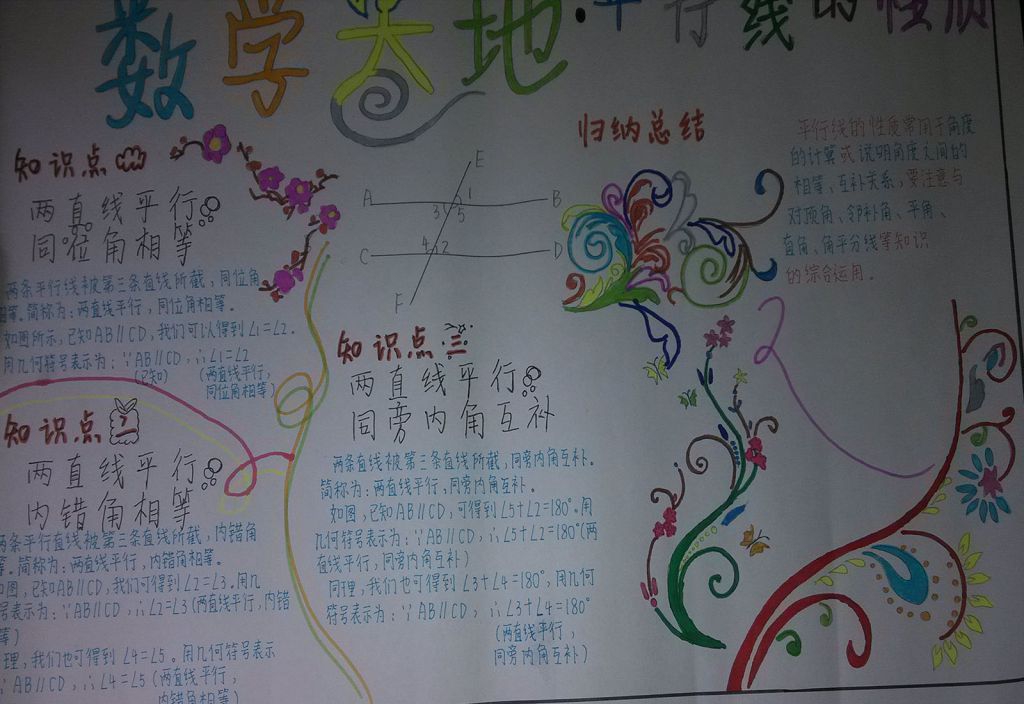 数学天地·平行线的性质
知识点一
两直线平行
同位角相等
两条平行线被第三条直线所截，同位角
相等。简称为：两直线平行，同位角相等。
如图所示，已知AB//CD，我们可以得到∠1=∠2。
用几何符号表示为：∵AB//CD，∴∠1=∠2
(已知) (两直线平行，
同位角相等)
知识点二
两直线平行
内错角相等
两条平行直线被第三条直线所截，内错角
等。简称为：两直线平行，内错角相等。
如图，已知AB//CD，我们可得到∠2=∠3。用几
号表示为：∵AB//CD，∴∠2=∠3(两直线平行，内错
等)
理，我们也可得到∠4=∠5。用几何符号表示
∵AB//CD，∴∠4=∠5(两直线平行，
内错角相等)
E
A 1 B
3 5
4 2
C D
F
知识点三
两直线平行
同旁内角互补
两条直线被第三条直线所截，同旁内角互补。
简称为：两直线平行，同旁内角互补。
如图，已知AB//CD，可得到∠5+∠2=180°。用
几何符号表示为：∵AB//CD，∴∠5+∠2=180°(两
直线平行，同旁内角互补)
同理，我们也可得到∠3+∠4=180°，用几何
符号表示为：∵AB//CD，∴∠3+∠4=180°
(两直线平行，
同旁内角互补)
归纳总结
平行线的性质常用于角度
的计算或说明角度之间的
相等、互补关系，要注意与
对顶角、邻补角、平角、
直角、角平分线等知识
的综合运用。